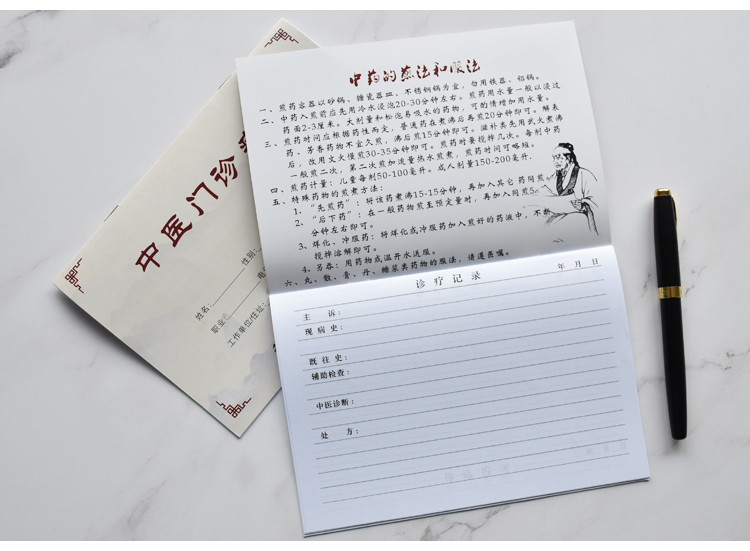 中医门诊
姓名:
性别:
职业
工作单位/住址:
中药的煎法和服法
一、煎药容器以砂锅、搪瓷器皿、不锈钢锅为宜,勿用铁器、铝锅。
二、中药入煎前应先用冷水浸泡20-30分钟左右。煎药用水量一般以浸过
药面2-3厘米。大剂量和松泡易吸水的药物,可酌情增加用水量。
三、煎药时间应根据药性而定,普通药在煮沸后再煎20分钟即可。解表
药、芳香药物不宜久煎,沸后煎15分钟即可。滋补类先用武火煮沸
后,改用文火慢煎30-35分钟即可。煎药时要搅拌几次。每剂中药
一般煎二次,第二次煎加适量热水煎煮,煎药时间可略短。
四、煎药计量:儿童每剂50-100毫升。成人剂量150-200毫升。
五、特殊药物的煎煮方法:
1、“先煎药”:将该药煮沸15-15分钟,再加入其它药同煎
2、“后下药”:在一般药物煎至预定量时,再加入同煎5
分钟左右即可。
3、烊化、冲服药:将烊化或冲服药加入煎好的药液中,不断
搅拌溶解即可。
4、另吞:用药物或温开水送服。
六、丸、散、膏、丹、糖浆类药物的服法,请遵医嘱。
诊疗记录
年 月 日
主 诉:
现病史:
既往史:
辅助检查:
中医诊断:
处 方: